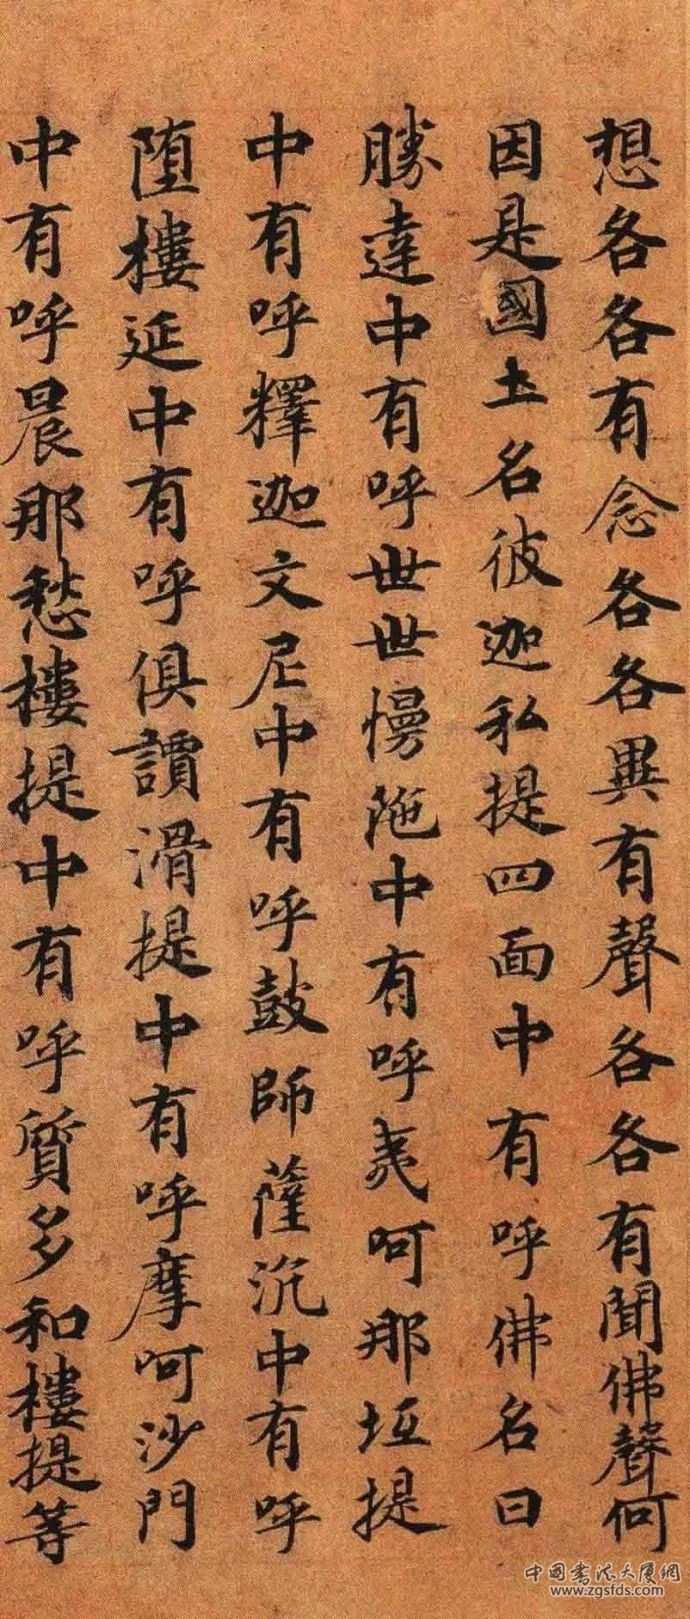 想各各有念各各異有聲各各有聞佛聲何
因是國土名彼迦私提四面中有呼佛名曰
勝達中有呼世世慢陁中有呼夷呵那垣提
中有呼釋迦文尼中有呼鼓師薩沉中有呼
堕樓延中有呼俱譚滑提中有呼摩呵沙門
中有呼晨那愁樓提中有呼質多和樓提等
中國書法大廈網
www.zgsfds.com